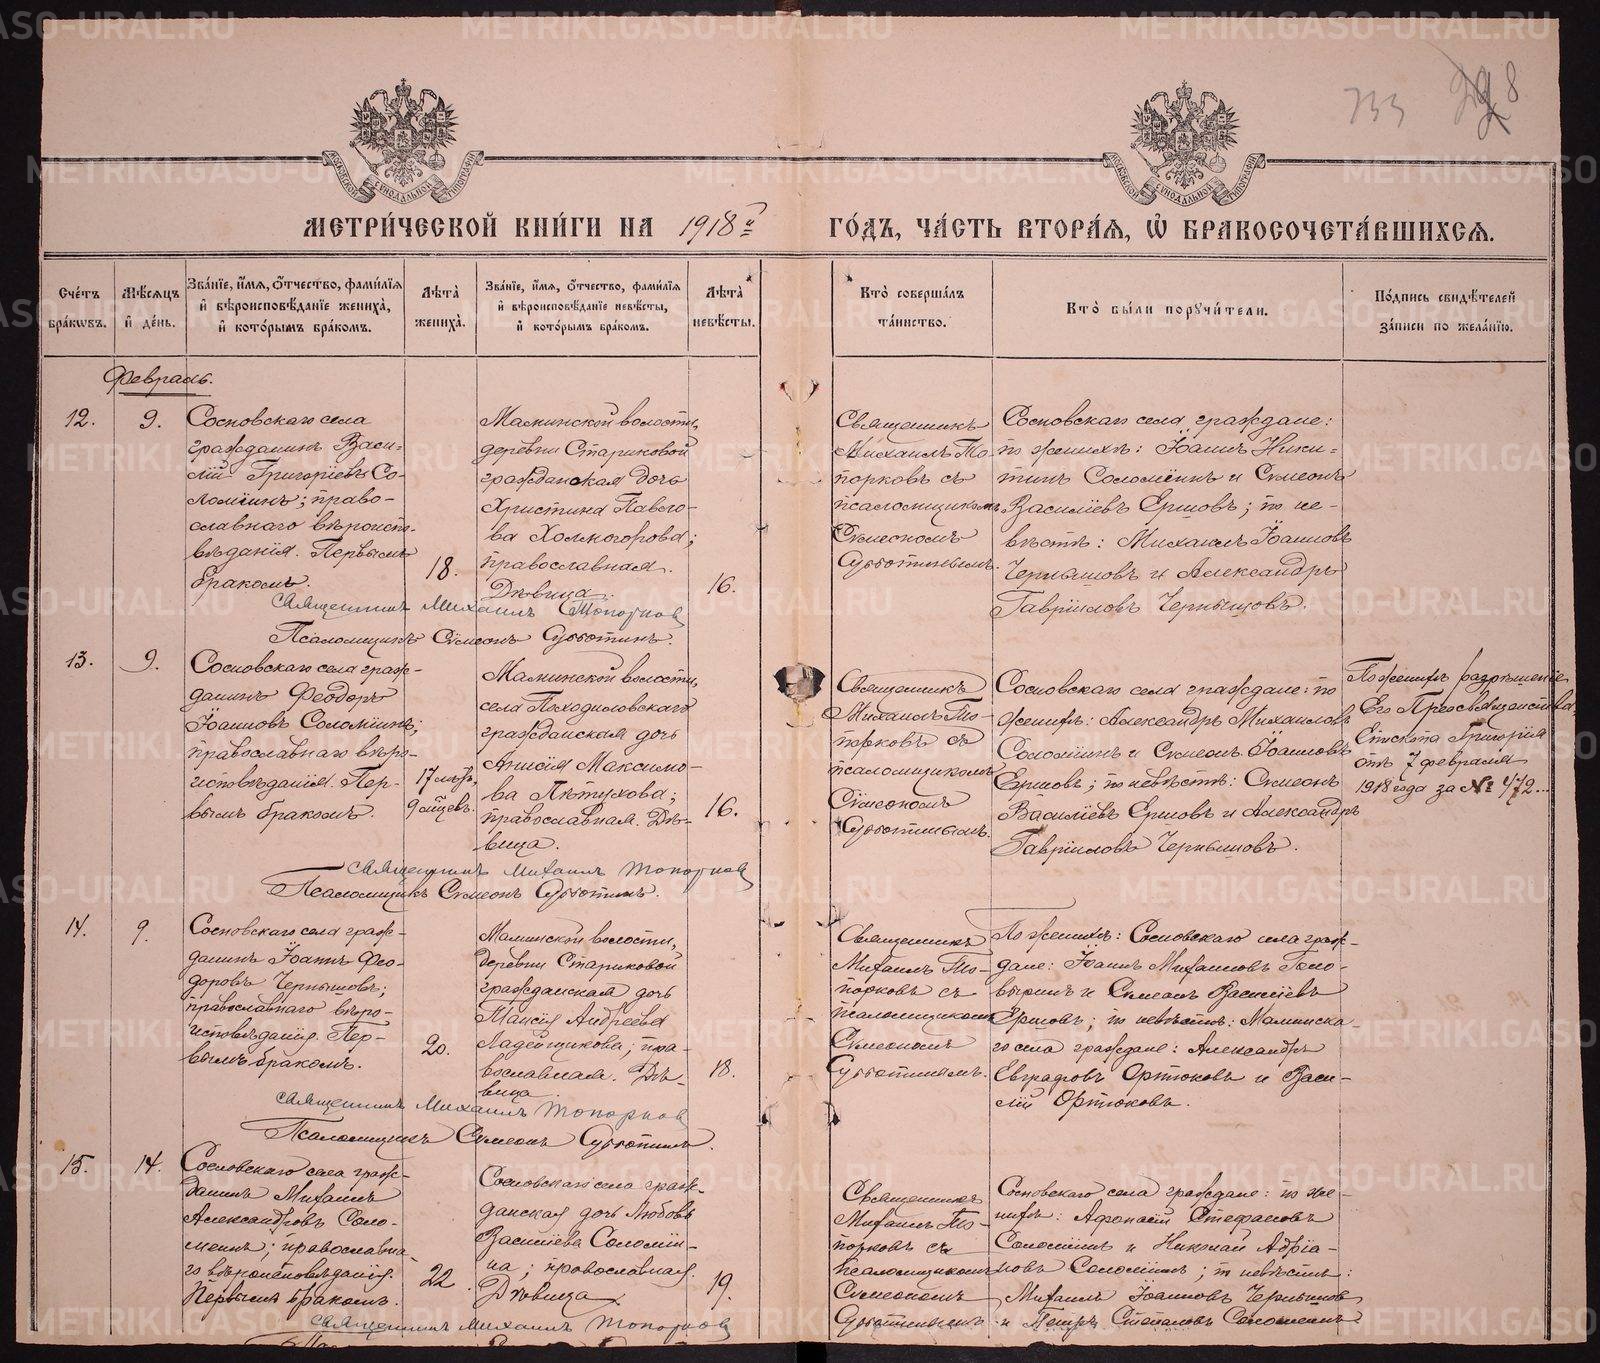 733 8
МЕТРИ́ЧЕСКОЙ КНИ́ГИ НА 1918й ГО́ДЪ, ЧА́СТЬ ВТОРА́Я, Ѡ҆ БРАКОСОЧЕТА́ВШИХСЯ.
Сче́тъ бра́кѡвъ.
Мѣ́сяцъ и҆ де́нь.
Зва́нїе, и҆́мя, ѻ҆́тчество, фами́лїя и҆ вѣроисповѣ́данїе жениха̀, и҆ кото́рымъ бра́комъ.
Лѣ́та жениха̀.
Зва́нїе, и҆́мя, ѻ҆́тчество, фами́лїя и҆ вѣроисповѣ́данїе невѣ́сты, и҆ кото́рымъ бра́комъ.
Лѣ́та невѣ́сты.
Кто̀ соверша́лъ та́инство.
Кто̀ бы́ли порꙋчи́тели.
По́дпись свидѣ́телей за́писи по жела́нїю.
Февраль.
12.
9.
Сосновскаго села
гражданинъ Васи-
лій Григоріевъ Со-
ломеинъ; право-
славнаго вѣроиспо-
вѣданія. Первымъ
бракомъ.
18.
Маминской волости,
деревни Стариковой
гражданская дочь
Христина Павло-
ва Холмогорова;
православная.
Дѣвица.
16.
Священникъ
Михаилъ То-
порковъ съ
псаломщикомъ
Сѵмеономъ
Субботинымъ.
Сосновскаго села граждане:
по женихѣ: Іоаннъ Ники-
тинъ Соломеинъ и Сѵмеонъ
Василіевъ Ершовъ; по не-
вѣстѣ: Михаилъ Іоанновъ
Чернышовъ и Александръ
Гавріиловъ Чернышовъ.
Священникъ Михаилъ Топорков
Псаломщикъ Сѵмеонъ Субботинъ.
13.
9.
Сосновскаго села граж-
данинъ Феодоръ
Іоанновъ Соломеинъ;
православнаго вѣро-
исповѣданія. Пер-
вымъ бракомъ.
17 лѣтъ,
9 мѣсцевъ.
Маминской волости,
села Походиловскаго
гражданская дочь
Анисія Максимо-
ва Пѣтухова;
православная. Дѣ-
вица.
16.
Священникъ
Михаилъ То-
порковъ съ
псаломщикомъ
Сѵмеономъ
Субботинымъ.
Сосновскаго села граждане: по
женихѣ: Александръ Михаиловъ
Соломеинъ и Сѵмеонъ Іоанновъ
Ершовъ; по невѣстѣ: Сѵмеонъ
Василіевъ Ершовъ и Александръ
Гавріиловъ Чернышовъ.
По женихѣ разрѣшеніе
Его Преосвященства,
Епископа Григорія
отъ 7 февраля
1918 года за № 472.
Священникъ Михаилъ Топорков
Псаломщикъ Сѵмеонъ Субботинъ.
14.
9.
Сосновскаго села граж-
данинъ Іоаннъ Фео-
доровъ Чернышовъ;
православнаго вѣро-
исповѣданія. Пер-
вымъ бракомъ.
20.
Маминской волости,
деревни Стариковой
гражданская дочь
Таисія Андреева
Ладейщикова; пра-
вославная. Дѣ-
вица.
18.
Священникъ
Михаилъ То-
порковъ съ
псаломщикомъ
Сѵмеономъ
Субботинымъ.
По женихѣ: Сосновскаго села граж-
дане: Іоаннъ Михаиловъ Голо-
выринъ и Сѵмеонъ Василіевъ
Ершовъ; по невѣстѣ: Маминска-
го села граждане: Александръ
Евграфовъ Ортюковъ и Васи-
лій Ортюковъ.
Священникъ Михаилъ Топорков
Псаломщикъ Сѵмеонъ Субботинъ.
15.
14.
Сосновскаго села граж-
данинъ Михаилъ
Александровъ Соло-
меинъ; православна-
го вѣроисповѣданія.
Первымъ бракомъ.
22.
Сосновскаго села граж-
данская дочь Любовь
Василіева Соломеи-
на; православная.
Дѣвица.
19.
Священникъ
Михаилъ То-
порковъ съ
псаломщикомъ
Сѵмеономъ
Субботинымъ
Сосновскаго села граждане: по же-
нихѣ: Афонасій Стефановъ
Соломеинъ и Николай Адріа-
новъ Соломеинъ; по невѣстѣ:
Михаилъ Іоанновъ Чернышовъ
и Петръ Степановъ Соломеинъ
Священникъ Михаилъ Топорков
METRIKI.GASO-URAL.RU